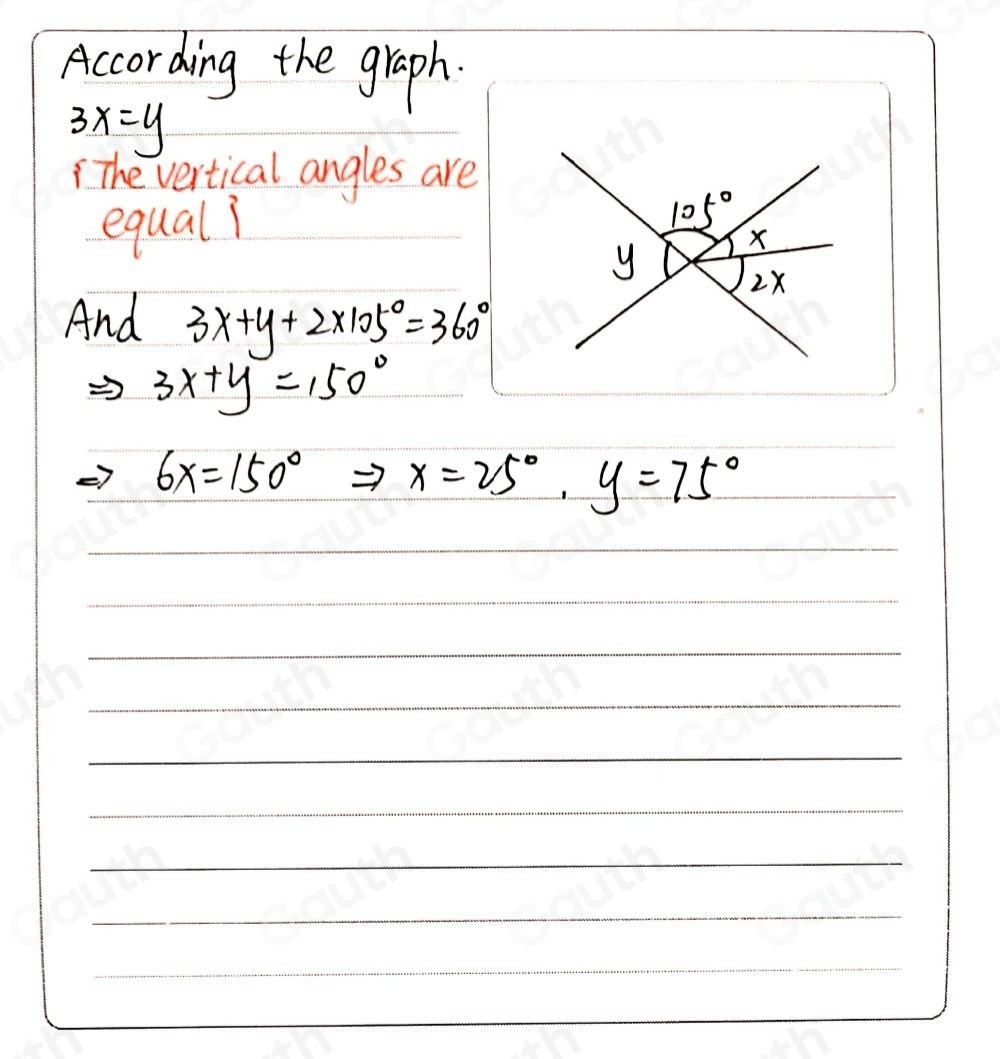 According the graph.
3x=y
{The vertical angles are
equal}
And 3x+y+2x105°=360°
⇒ 3x+y=150°
⇒ 6x=150° ⇒ x=25°. y=75°
105°
x
y
2x
Gauth